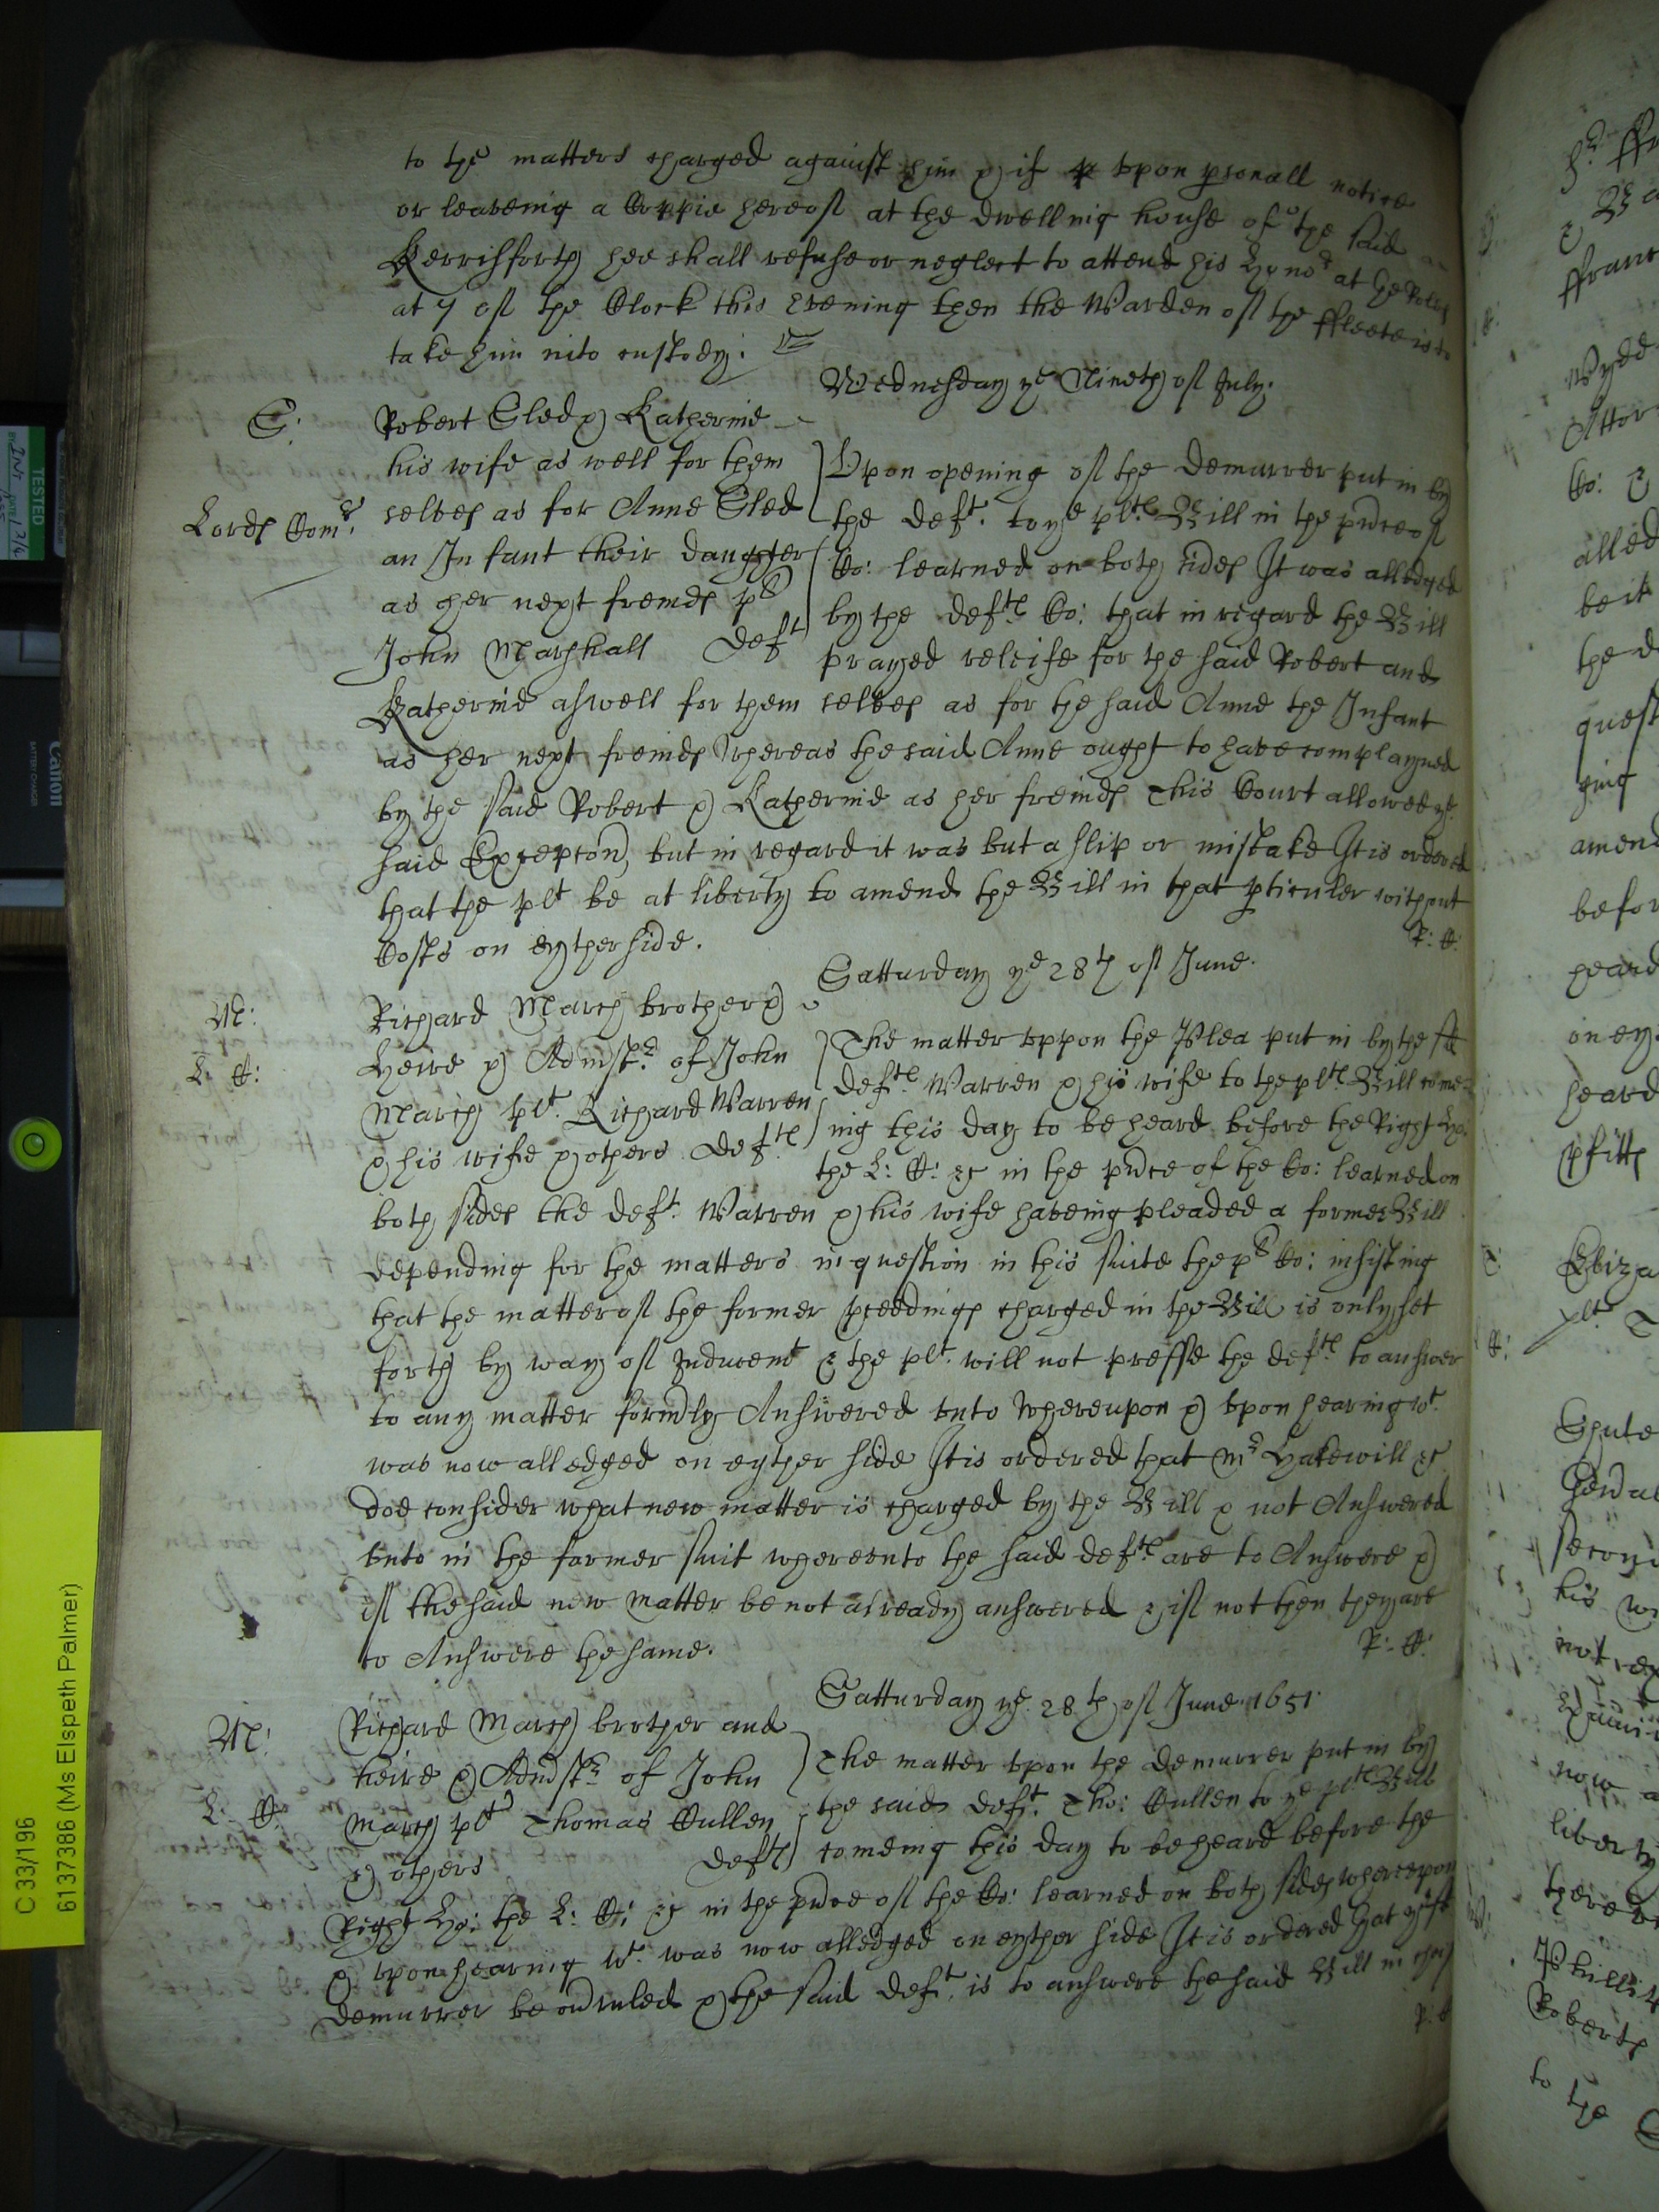 to the matters charged against him & if upon psonall notice
or leaveing a Coppie hereof at the dwelling house of the said
Kerrishforth hee shall refuse or neglect to attend his Hono^r at the Rolles
at 7 of the Clock this Evening then the Warden of the ffleete is to
take him into custody:
Wednesday y^e Nineth of July.
S:
Lords Com^rs
Robert Sled & Katherine
his wife as well for them
selves as for Anne Sled
an Infant their daughter
as her next freinds p^ls
John Marshall Def^t
Upon opening of the Demurrer put in by
the Def^t. to y^e pl^ts Bill in the pnce of
Co: learned on both sides It was alledged
by the def^ts Co: that in regard the Bill
prayed releife for the said Robert and
Katherine aswell for them selves as for the said Anne the Infant
as her next freinds Whereas the said Anne ought to have complayned
by the said Robert & Katherine as her freinds This Court allowed y^e
said Excepcon, but in regard it was but a slip or mistake It is ordered
that the pl^t be at liberty to amend the Bill in that pticuler without
Costs on eyther side.
R: C:
Satturday y^e 28th of June.
M:
L: C:
Richard March brother &
Heire & Admst^r of John
March pl^t. Richard Warren
& his wife & others Def^ts
The matter uppon the Plea put in by the
Def^ts Warren & his wife to the pl^ts Bill come
ing this day to be heard before the Right Ho:
the L: C: &c in the pnce of the Co: learned on
both sides the def^t. Warren & his wife haveing pleaded a former Bill
depending for the matters in question in this suite the p^ls Co: insisting
that the matter of the former pceedings charged in the Bill is only set
forth by way of Inducem^t & the pl^t. will not presse the def^ts to answer
to any matter formrly Answered unto Whereupon & upon hearing w^t.
was now alledged on eyther side It is ordered that M^r Hakewill &c
doe consider what new matter is charged by the Bill & not Answered
unto in the former suit whereunto the said def^ts are to Answere &
if the said new matter be not already answered & if not then they are
to Answere the same.
R: C:
Satturday y^e. 28th of June. 1651.
M:
L: C:
Richard March brother and
heire & Admst^r of John
March pl^t Thomas Cullen
& others Def^ts
The matter upon the Demurrer put in by
the said def^t. Tho: Cullen to y^e pl^ts Bill
comeing this day to be heard before the
Right Ho: the L: C: &c in the pnce of the Co: learned on both sides whereupon
& upon hearing w^t. was now alledged on eyther side It is ordered that
demurrer be ovrruled & the said def^t. is to answere the said Bill in
C 33/196
6137386 (Ms Elspeth Palmer)
TESTED
Canon
BATTERY CHARGER